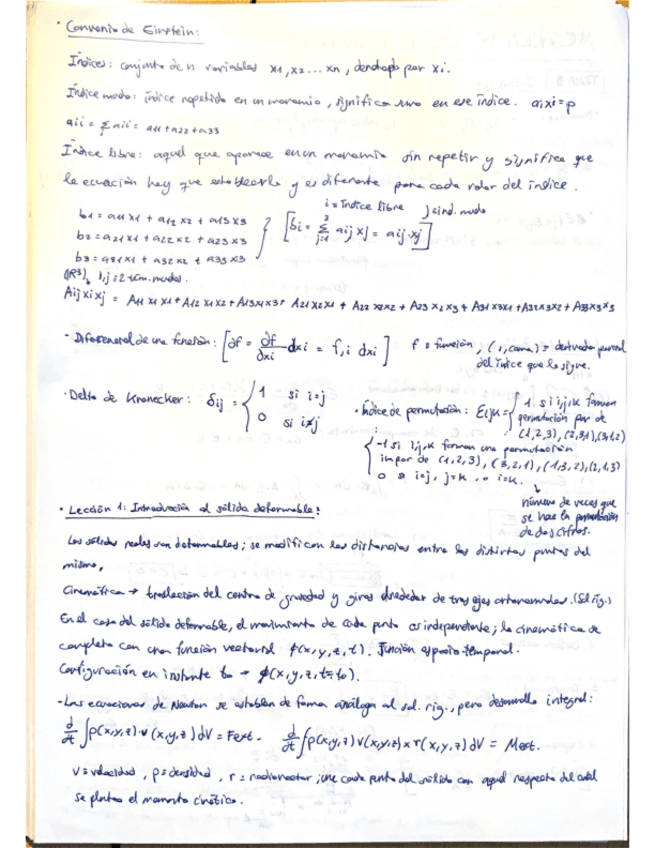 · Convenio de Einstein:
Índices: conjunto de n variables x1, x2 ... xn, denotado por xi.
Índice mudo: índice repetido en un monomio, significa suma en ese índice. aixi = p
aii = Σ aii = a11 + a22 + a33
Índice libre: aquel que aparece en un monomio sin repetir y significa que
la ecuación hay que establecerla y es diferente para cada valor del índice.
i = índice libre j = ind. mudo
b1 = a11 x1 + a12 x2 + a13 x3
b2 = a21 x1 + a22 x2 + a23 x3
b3 = a31 x1 + a32 x2 + a33 x3
[bi = Σ j=1 3 aij xj = aij·xj]
(R³), i,j = 2 mudos.
Aij xi xj = A11 x1 x1 + A12 x1 x2 + A13 x1 x3 + A21 x2 x1 + A22 x2 x2 + A23 x2 x3 + A31 x3 x1 + A32 x3 x2 + A33 x3 x3
- Diferencial de una función: [∂f = ∂f/∂xi dxi = f,i dxi] f = función, (,coma) = derivada parcial
del índice que lo sigue.
· Delta de Kronecker: δij = { 1 si i=j
0 si i≠j
· Índice de permutación: Eijk = { 1 si i,j,k forman
permutación par de
(1,2,3), (2,3,1), (3,1,2)
-1 si i,j,k forman una permutación
impar de (1,2,3), (3,2,1), (1,3,2), (2,1,3)
0 si i=j, j=k, o i=k.
número de veces que
se hace la permutación
de dos cifras.
· Lección 1: Introducción al sólido deformable:
Los sólidos reales son deformables; se modifican las distancias entre los distintos puntos del
mismo.
Cinemática → traslación del centro de gravedad y giros alrededor de tres ejes ortonormales. (Sol rig.)
En el caso del sólido deformable, el movimiento de cada punto es independiente; la cinemática se
completa con una función vectorial ϕ(x,y,z,t). Función espacio temporal.
Configuración en instante to → ϕ(x,y,z,t=to).
- Las ecuaciones de Newton se establen de forma análoga al sol. rig., pero desarrollo integral:
d/dt ∫ρ(x,y,z)·v(x,y,z) dV = Fext. d/dt ∫ρ(x,y,z) v(x,y,z) x r(x,y,z) dV = Mext.
v = velocidad, ρ = densidad, r = radiovector; une cada punto del sólido con aquel respecto del cual
se plantea el momento cinético.